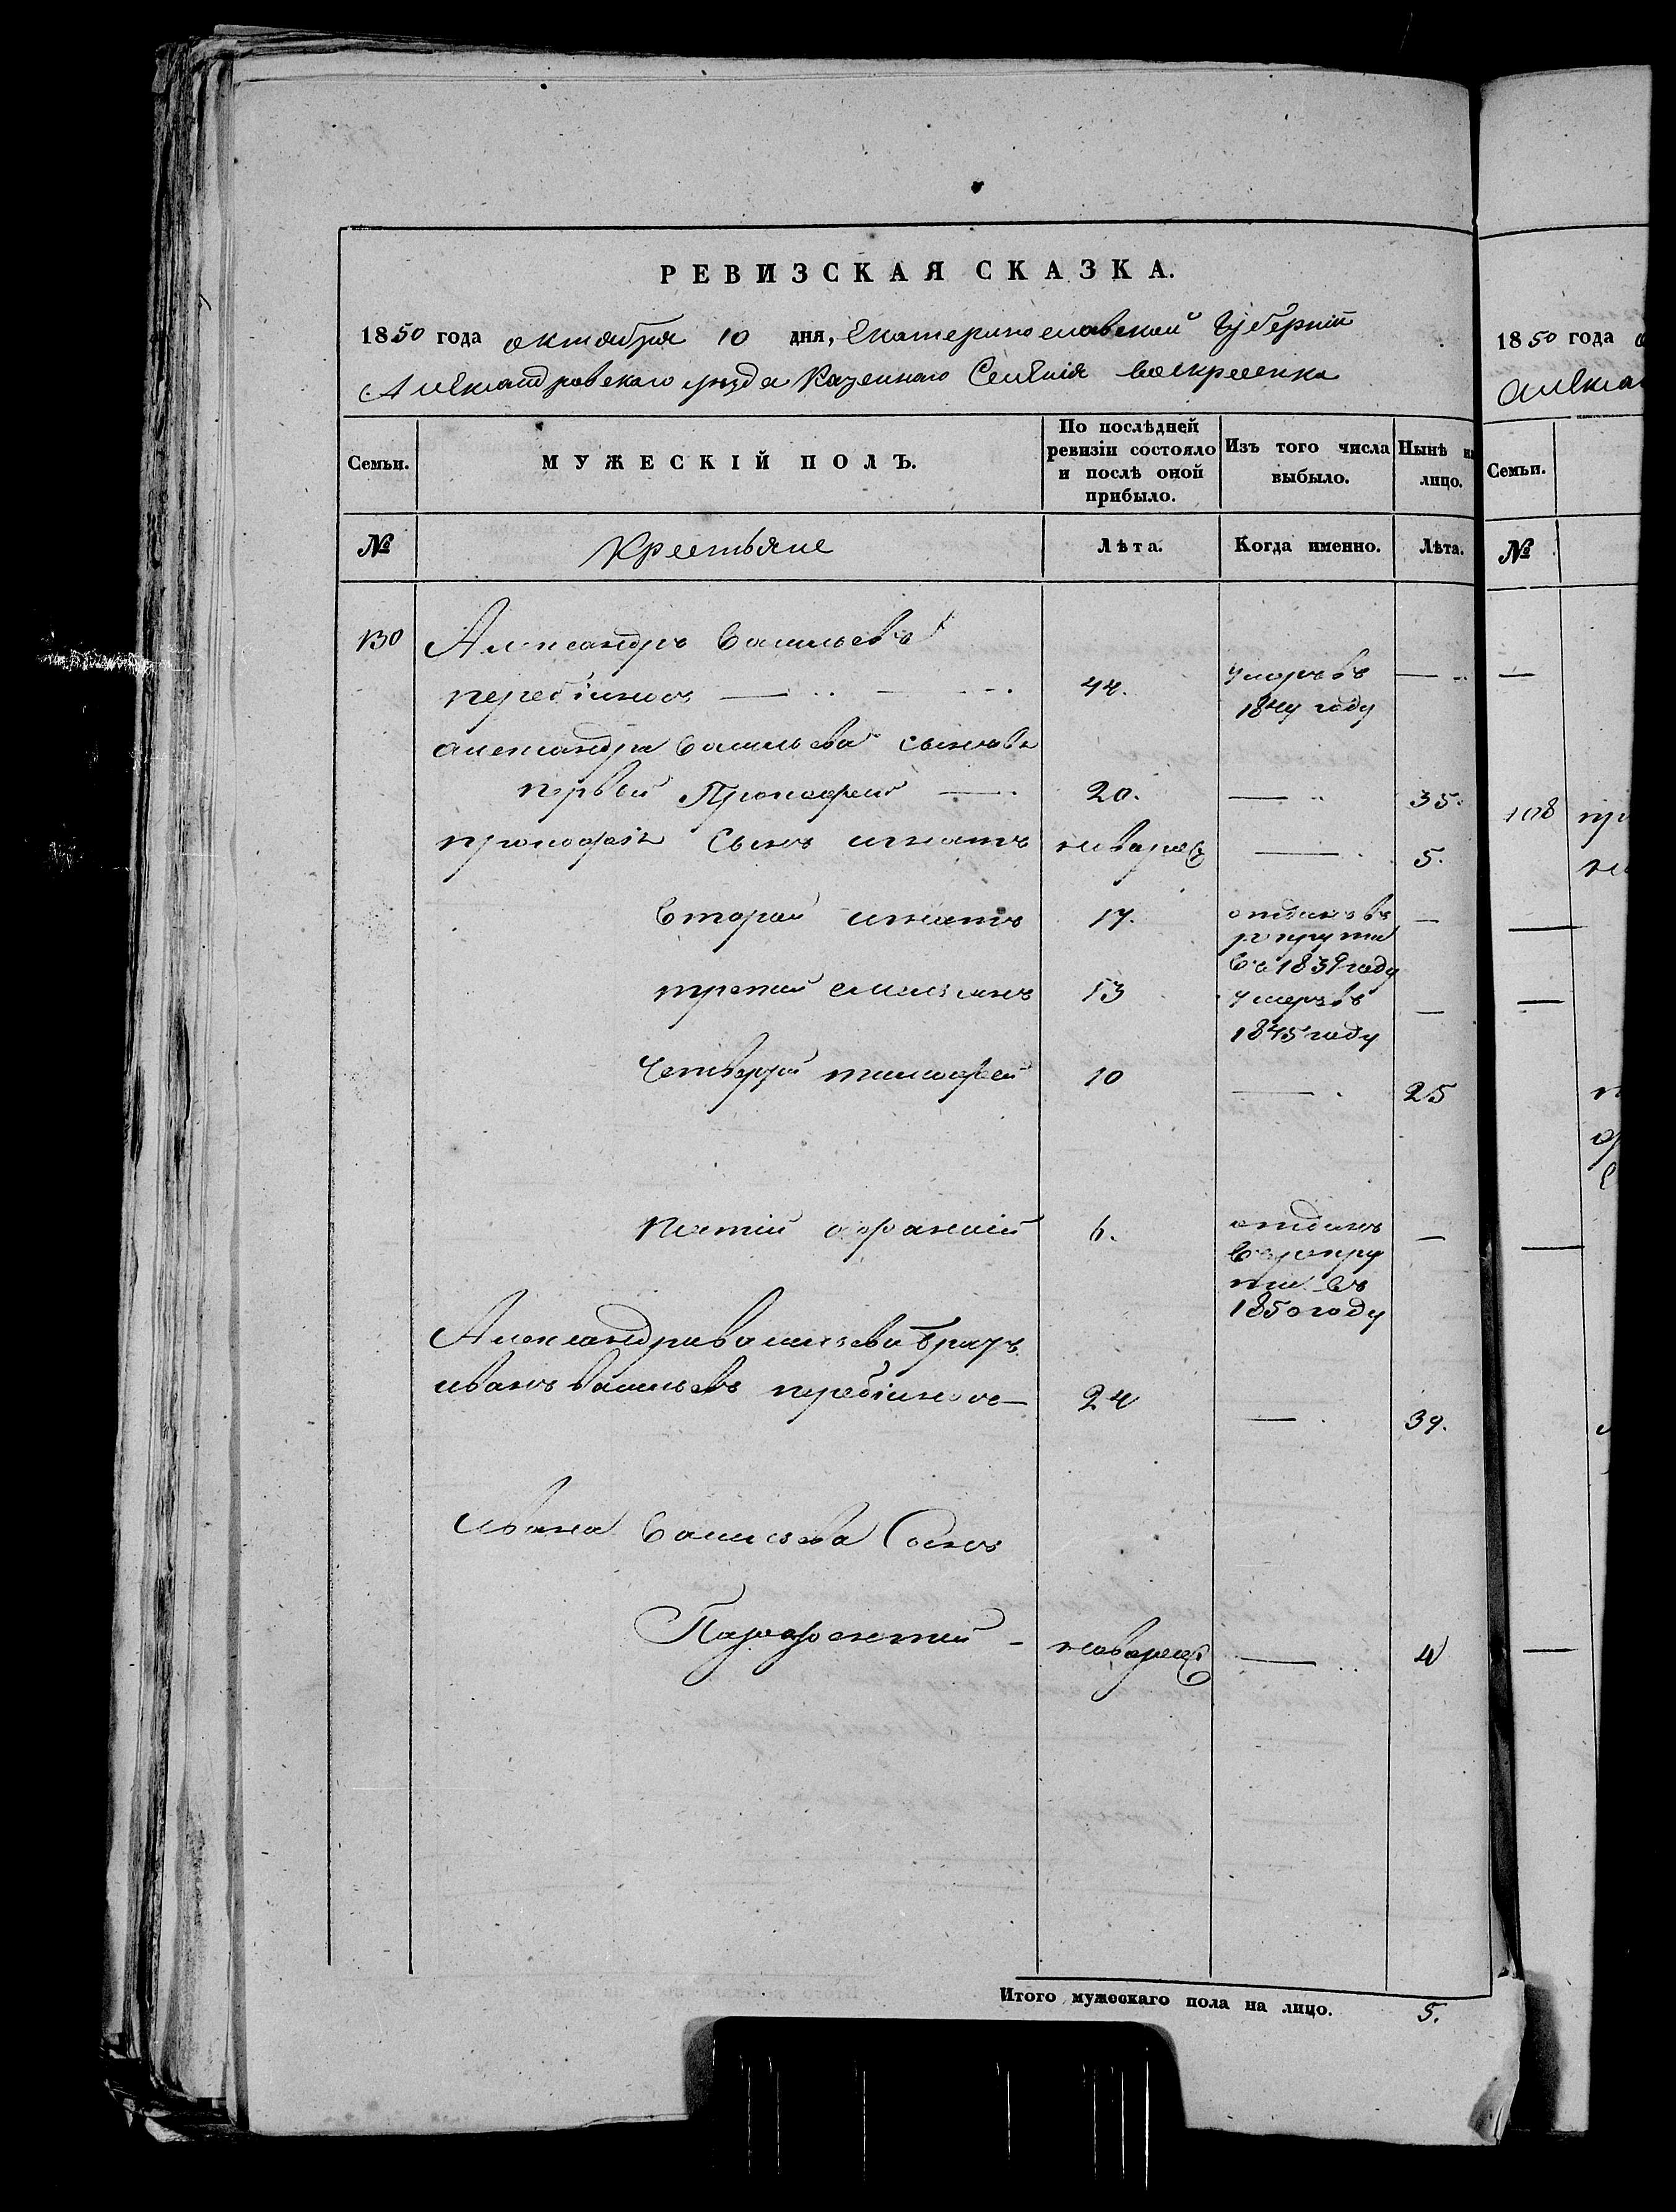 РЕВИЗСКАЯ СКАЗКА.
1850 года октября 10 дня, Екатеринославской Губернии
Александровскаго уезда Казеннаго Селения Воскресенка
Семьи.
МУЖЕСКІЙ ПОЛЪ.
По послѣдней ревизіи состояло и послѣ оной прибыло.
Изъ того числа выбыло.
Нынѣ на лицо.
№
Крестьяне
Лѣта.
Когда именно.
Лѣта.
130 Александръ Васильевъ
44. умеръ въ
1844 году
Александра Васильева сыновья
первый Прокофей 20. 35.
прокофия Сынъ игнатъ новорож 5.
Второй игнатъ 17. отданъ въ
рекруты
въ 1839 году
третий емельянъ 13 умеръ въ
1845 году
Четвертый тимофей 10 25
Пятий 6. отданъ
въ рекру
ты въ
1850 году
Александра Васильева братъ
иванъ Васильевъ 24 39.
Ивана Васильева Сынъ
новорож 4
Итого мужескаго пола на лицо. 5.
1850 года
Семьи.
№
108